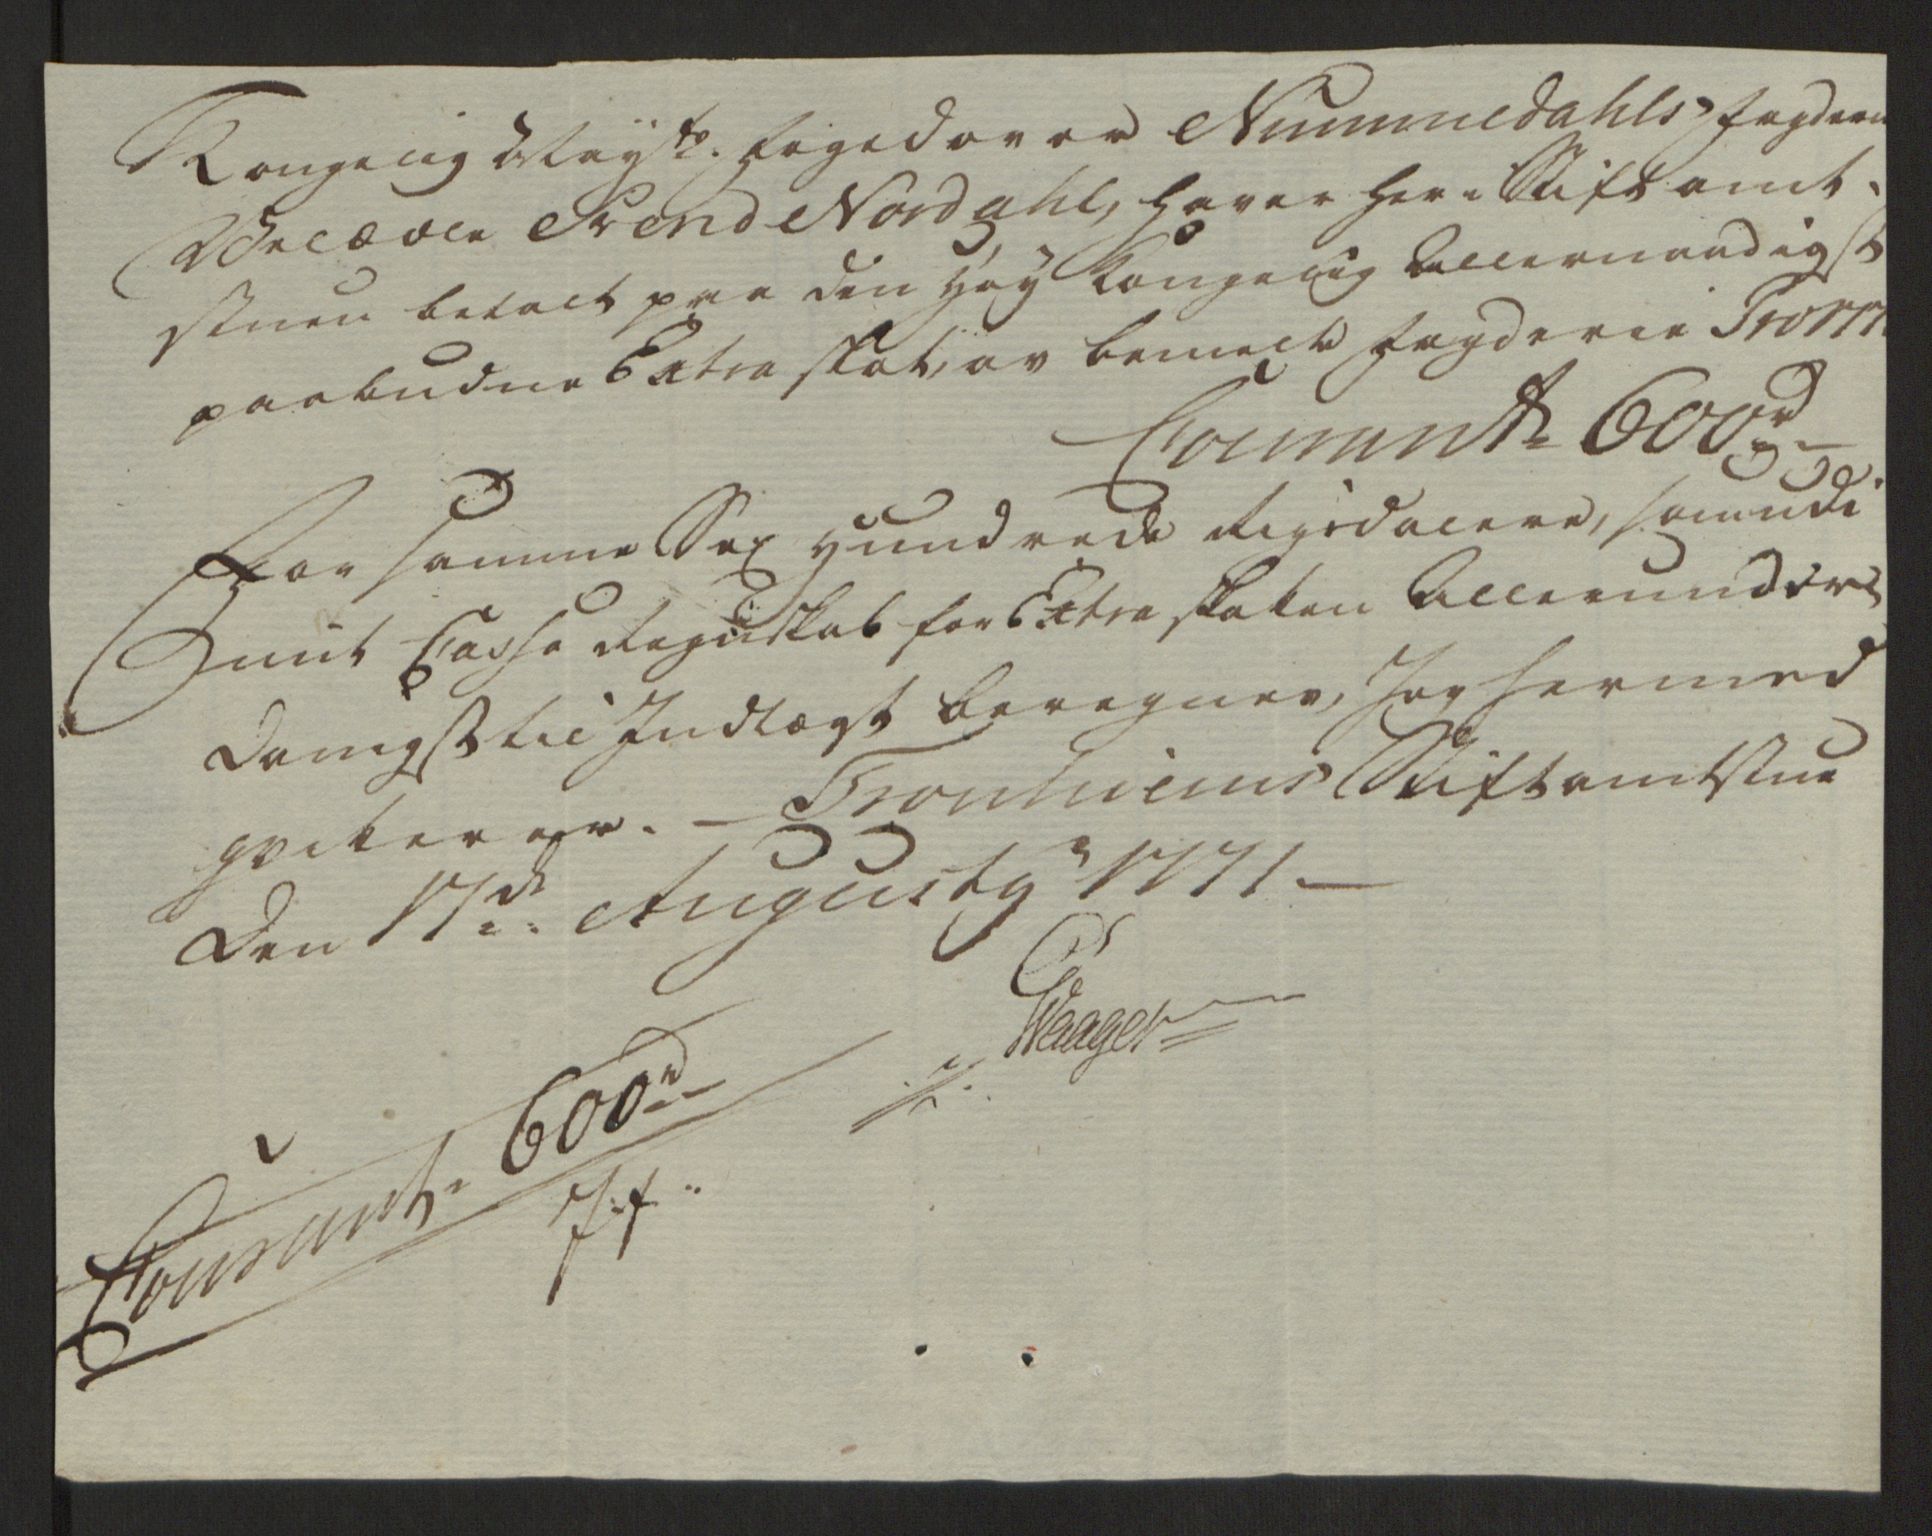 Kongelig Mayts. Foged over Nummedahls Fogderie
Velædle Svend Nordahl, haver her i Stiftamt-
stuen betalt paa den Høy Kongelig Allernaadigst
paabudne Extra skat, av bemelte Fogderie Trom
Courant 600 rd
For samme Sex Hundrede Rigsdalere, som udi
mit Cassa Regnskab for Extra skatten Allerunder
danigst til Indtægt beregner, Jeg hermed
qviterer. Tronhiems Stiftamtstue
Den 17de Augusty 1771
Waager
Courant 600 rd